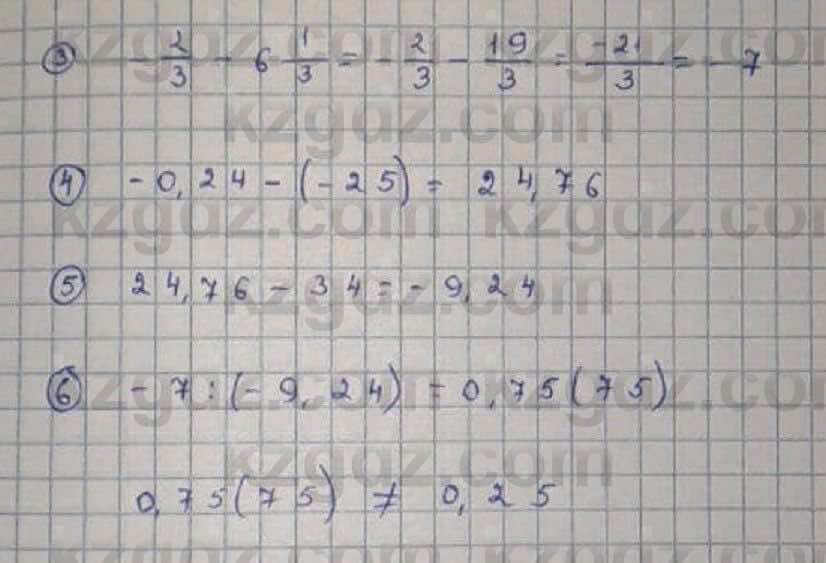 ③ -2/3 - 6 1/3 = -2/3 - 19/3 = -21/3 = -7
④ -0,24 - (-25) = 24,76
⑤ 24,76 - 34 = -9,24
⑥ -7 : (-9,24) = 0,75(75)
0,75(75) ≠ 0,25
kzgdz.com